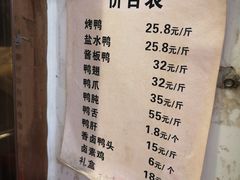 价目表
烤鸭 25.8元/斤
盐水鸭 25.8元/斤
酱板鸭 32元/斤
鸭翅 32元/斤
鸭爪 35元/斤
鸭肫 55元/斤
鸭舌 1.8元/个
鸭肝 15元/斤
香卤鸭头 6元/个
卤素鸡 18
礼盒